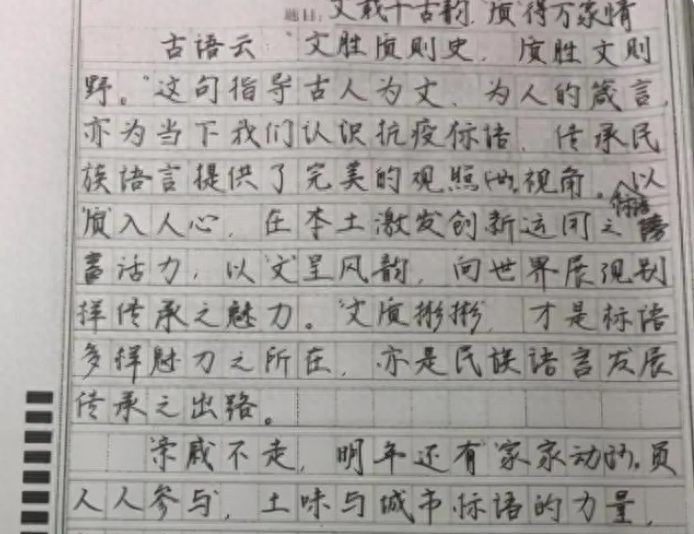 题目:文载千古韵,质得万家情
古语云“文胜质则史,质胜文则
野。”这句指导古人为文、为人的箴言,
亦为当下我们认识抗疫标语、传承民
族语言提供了完美的观照视角。以
“质”入人心,在本土激发创新运用之标语
活力,以“文”呈风韵,向世界展现别
样传承之魅力。“文质彬彬”,才是标语
多样魅力之所在,亦是民族语言发展
传承之出路。
“亲戚不走,明年还有”家家动员,
人人参与,土味与城市标语的力量,